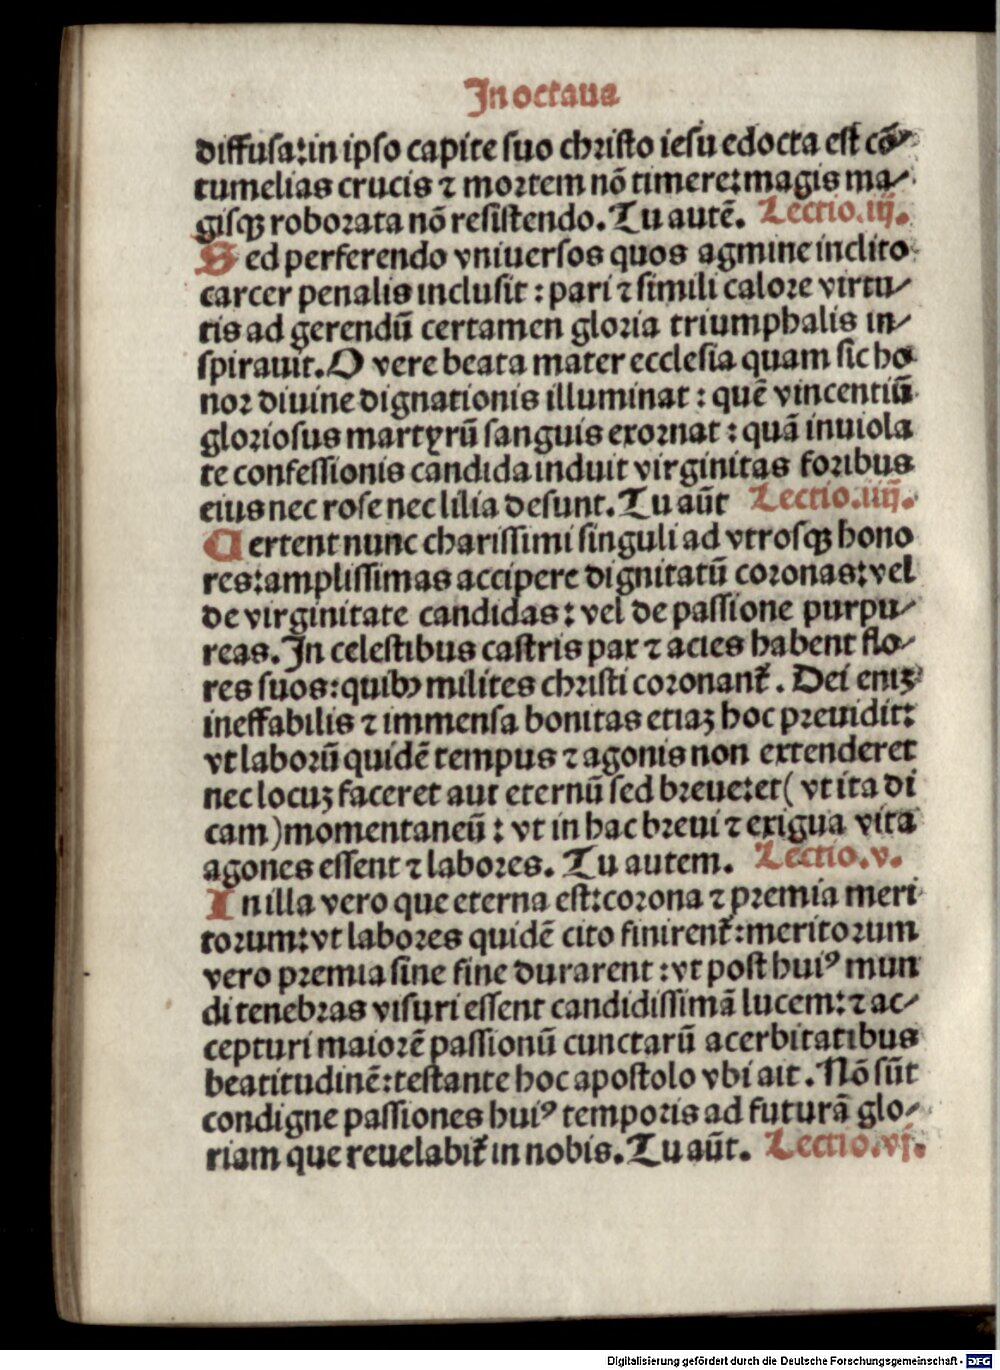 In octaua
diffusa: in ipso capite suo christo iesu edocta est cō⸗
tumelias crucis ⁊ mortem nō timere: magis ma⸗
gisqꝫ roborata nō resistendo. Tu autē. Lectio.iij.
Sed perferendo vniuersos quos agmine inclito
carcer penalis inclusit: pari ⁊ simili calore virtu⸗
tis ad gerendū certamen gloria triumphalis in⸗
spirauit. O vere beata mater ecclesia quam sic ho
nor diuine dignationis illuminat: quē vincentiū
gloriosus martyrū sanguis exornat: quā inuiola
te confessionis candida induit virginitas foribus
eius nec rose nec lilia desunt. Tu aūt Lectio.iiij.
Certent nunc charissimi singuli ad vtrosqꝫ hono
res: amplissimas accipere dignitatū coronas: vel
de virginitate candidas: vel de passione purpu⸗
reas. In celestibus castris pax ⁊ acies habent flo⸗
res suos: quibꝰ milites christi coronant᷑. Dei enīꝫ
ineffabilis ⁊ immensa bonitas etiaꝫ hoc preuidit:
vt laborū quidē tempus ⁊ agonis non extenderet
nec locuꝫ faceret aut eternū sed breue: et (vt ita di
cam) momentaneū: vt in hac breui ⁊ exigua vita
agones essent ⁊ labores. Tu autem. Lectio.v.
In illa vero que eterna est: corona ⁊ premia meri
torum: vt labores quidē cito finirent᷑: meritorum
vero premia sine fine durarent: vt post huiꝰ mun
di tenebras visuri essent candidissimā lucem: ⁊ ac⸗
cepturi maiorē passionū cunctarū acerbitatibus
beatitudinē: testante hoc apostolo vbi ait. Nō sūt
condigne passiones huiꝰ temporis ad futurā glo⸗
riam que reuelabit᷑ in nobis. Tu aūt. Lectio.vj.
Digitalisierung gefördert durch die Deutsche Forschungsgemeinschaft - DFG